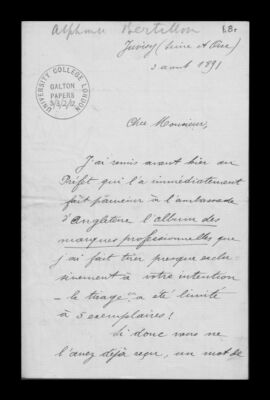 Alphonse Bertillon
68r
Juvisy (Seine et Oise)
3 août 1891
UNIVERSITY COLLEGE LONDON
GALTON
PAPERS
Cher Monsieur,
J'ai remis avant hier au
Préfet qui l'a immédiatement
fait parvenir à l'ambassade
d'Angleterre l'album des
marques professionnelles que
j'ai fait tirer presque exclu-
sivement à votre intention
- le tirage a été limité
à 5 exemplaires!
Si donc vous ne
l'avez déjà reçu, un mot de